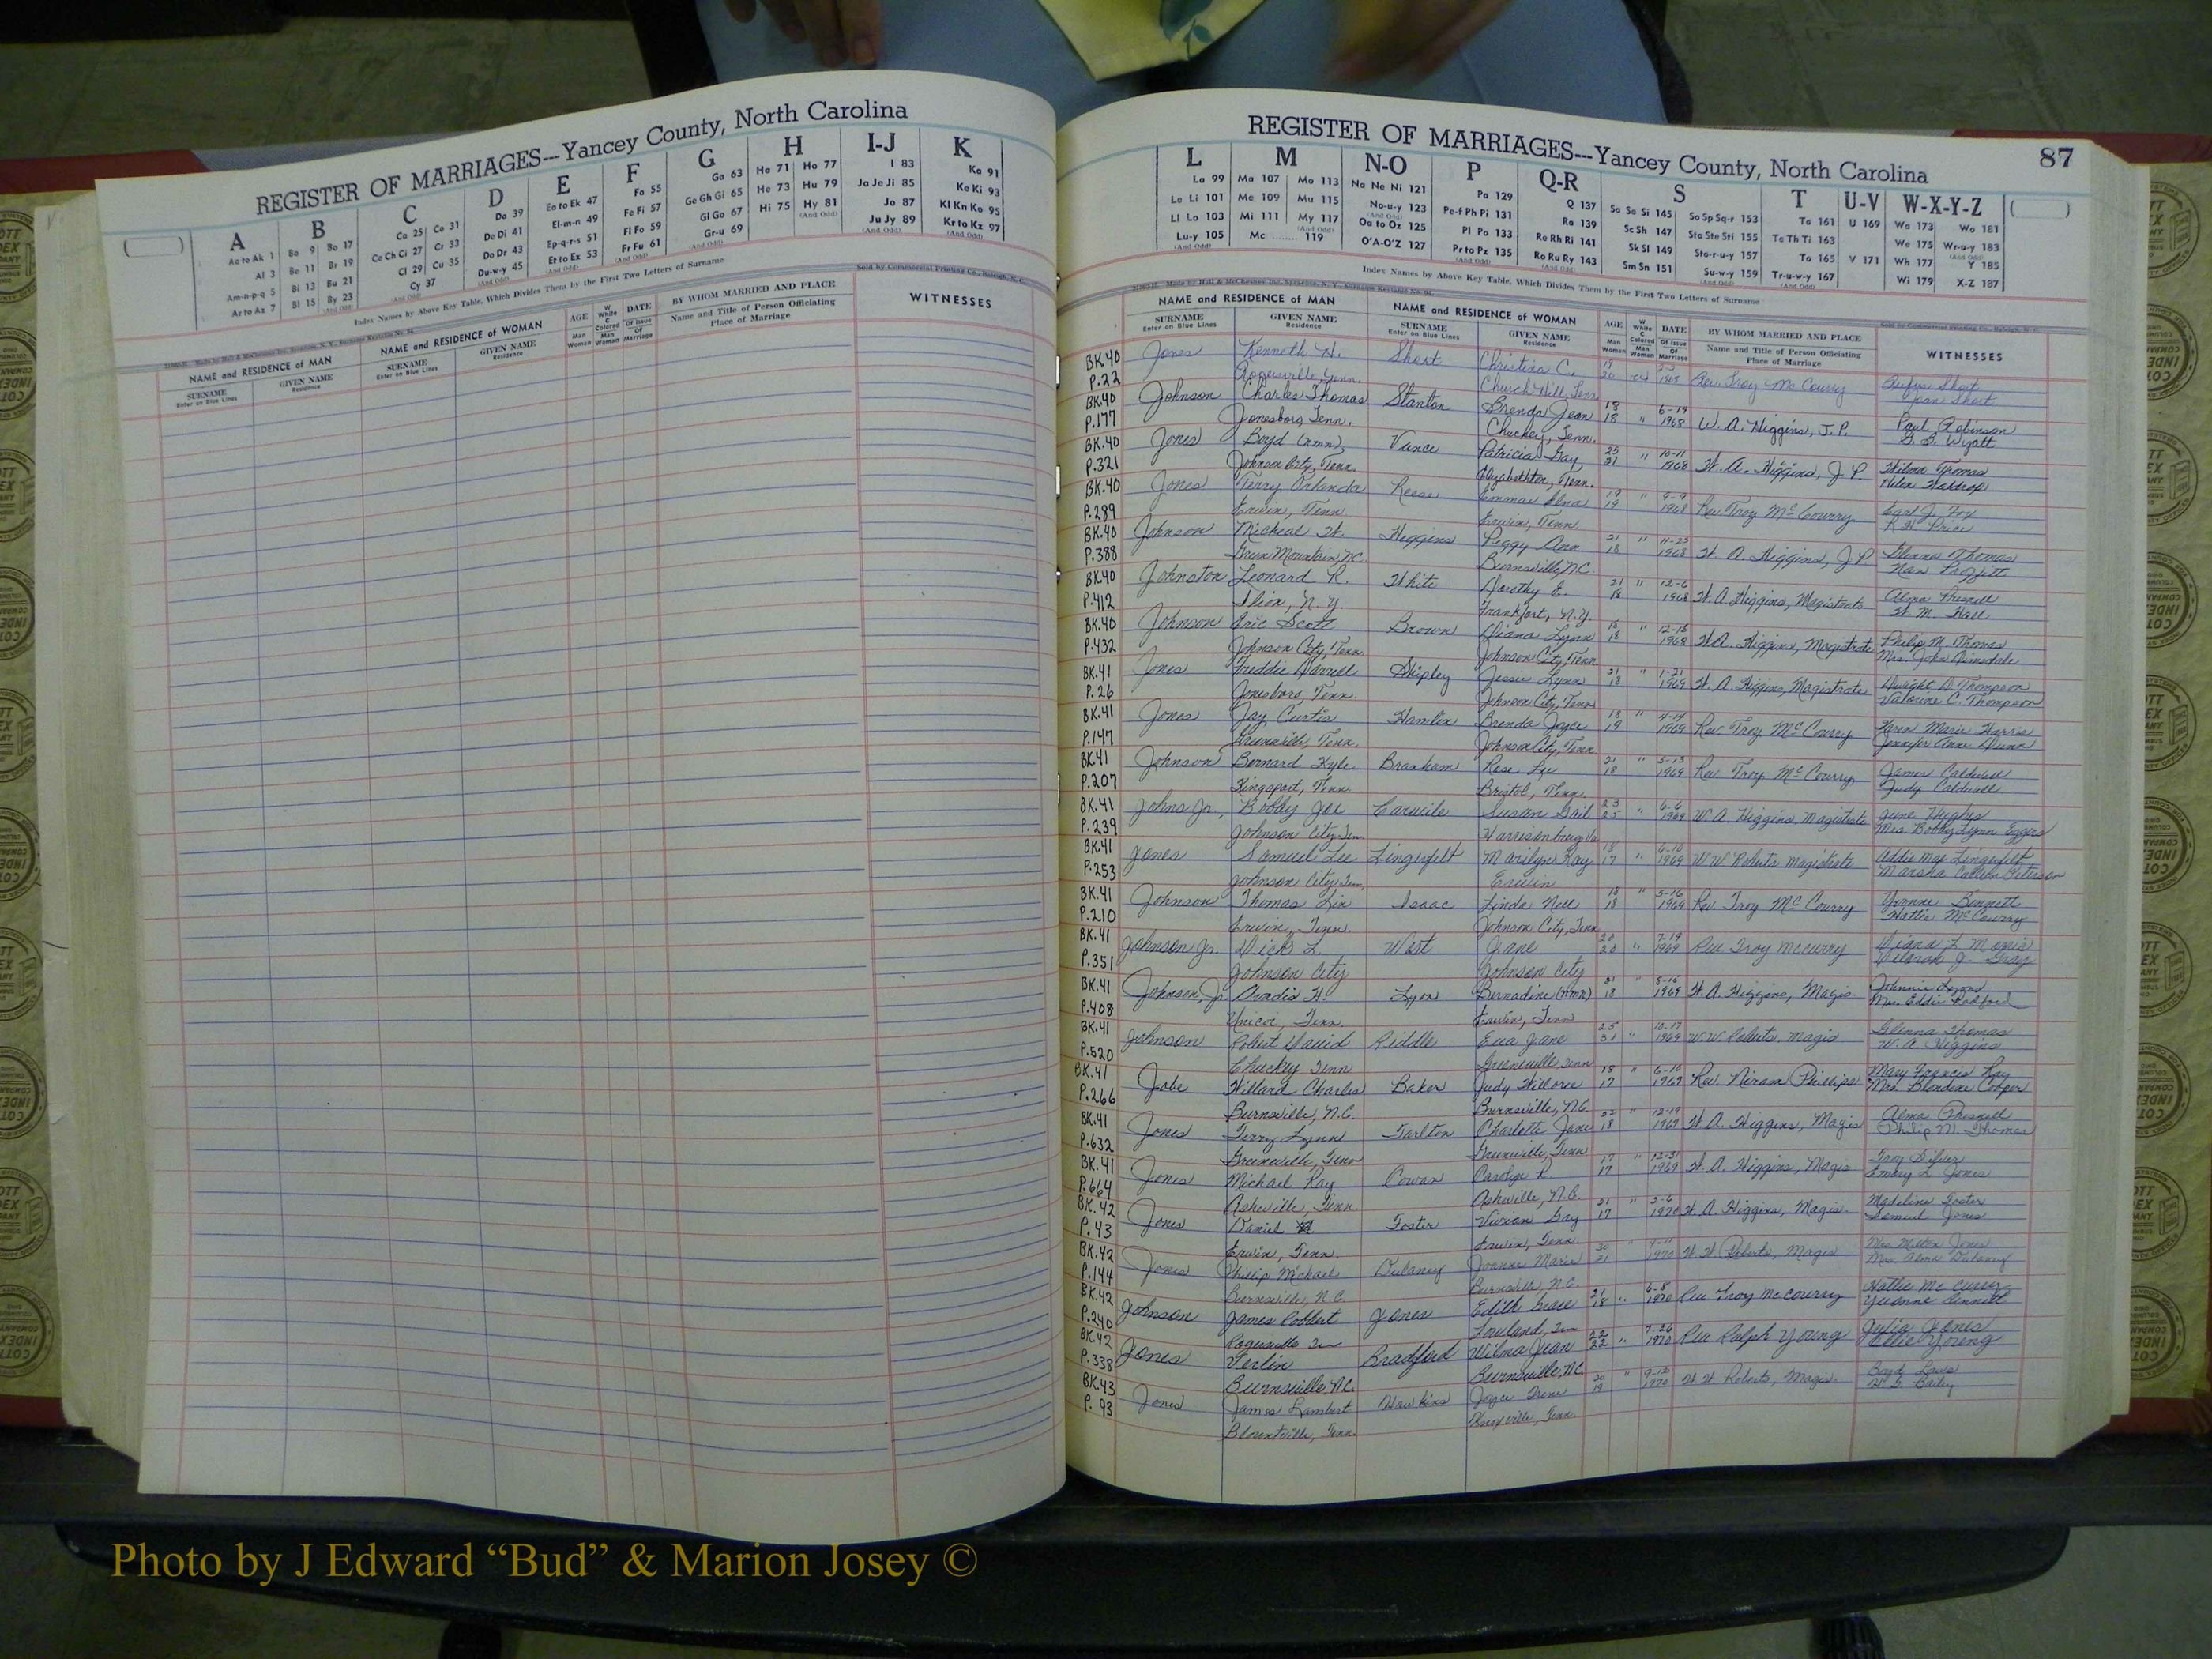 REGISTER OF MARRIAGES---Yancey County, North Carolina
A
Aa to Ak 1
Al 3
Am-n-p-q 5
Ar to Az 7
B
Ba 9 Bo 17
Be 11 Br 19
Bi 13 Bu 21
Bl 15 By 23
(And Odd)
C
Ca 25 Co 31
Ce Ch Ci 27 Cr 33
Cl 29 Cu 35
Cy 37
(And Odd)
D
Da 39
De Di 41
Do Dr 43
Du-w-y 45
(And Odd)
E
Ea to Ek 47
El-m-n 49
Ep-q-r-s 51
Et to Ez 53
(And Odd)
F
Fa 55
Fe Fi 57
Fl Fo 59
Fr Fu 61
(And Odd)
G
Ga 63
Ge Gh Gi 65
Gl Go 67
Gr-u 69
(And Odd)
H
Ha 71 Ho 77
He 73 Hu 79
Hi 75 Hy 81
(And Odd)
I-J
I 83
Ja Je Ji 85
Jo 87
Ju Jy 89
(And Odd)
K
Ka 91
Ke Ki 93
Kl Kn Ko 95
Kr to Kz 97
(And Odd)
Index Names by Above Key Table, Which Divides Them by the First Two Letters of Surname
Sold by Commercial Printing Co., Raleigh, N. C.
NAME and RESIDENCE of MAN
SURNAME
Enter on Blue Lines
GIVEN NAME
Residence
NAME and RESIDENCE of WOMAN
SURNAME
Enter on Blue Lines
GIVEN NAME
Residence
AGE
Man
Woman
W
White
C
Colored
Man
Woman
DATE
Of Issue
Of
Marriage
BY WHOM MARRIED AND PLACE
Name and Title of Person Officiating
Place of Marriage
WITNESSES
REGISTER OF MARRIAGES---Yancey County, North Carolina
87
L
La 99
Le Li 101
Ll Lo 103
Lu-y 105
(And Odd)
M
Ma 107 Mo 113
Me 109 Mu 115
Mi 111 My 117
Mc ........ 119
N-O
Na Ne Ni 121
No-u-y 123
(And Odd)
Oa to Oz 125
O'A-O'Z 127
P
Pa 129
Pe-f Ph Pi 131
Pl Po 133
Pr to Pz 135
(And Odd)
Q-R
Q 137
Ra 139
Re Rh Ri 141
Ro Ru Ry 143
(And Odd)
S
Sa Se Si 145 So Sp Sq-r 153
Sc Sh 147 Sta Ste Sti 155
Sk Sl 149 Sto-r-u-y 157
Sm Sn 151 Su-w-y 159
(And Odd)
T
Ta 161
Te Th Ti 163
To 165
Tr-u-w-y 167
(And Odd)
U-V
U 169
V 171
W-X-Y-Z
Wa 173 Wo 181
We 175 Wr-u-y 183
(And Odd)
Wh 177 Y 185
Wi 179 X-Z 187
Index Names by Above Key Table, Which Divides Them by the First Two Letters of Surname
Sold by Commercial Printing Co., Raleigh, N. C.
NAME and RESIDENCE of MAN
SURNAME
Enter on Blue Lines
GIVEN NAME
Residence
NAME and RESIDENCE of WOMAN
SURNAME
Enter on Blue Lines
GIVEN NAME
Residence
AGE
Man
Woman
W
White
C
Colored
Man
Woman
DATE
Of Issue
Of
Marriage
BY WHOM MARRIED AND PLACE
Name and Title of Person Officiating
Place of Marriage
WITNESSES
BK.40 Jones Kenneth H. Short Christina C. Rev. Troy McCourry Rufus Short
P.22 Rogersville, Tenn. Church Hill, Tenn. Jean Short
BK.40 Johnson Charles Thomas Stanton Brenda Jean 18 18 " 6-19 1968 W. A. Higgins, J.P. Paul Robinson
P.177 Jonesboro, Tenn. Chuckey, Tenn. G. G. Wyatt
BK.40 Jones Boyd (nmn) Vance Patricia Gay 25 21 " 10-11 1968 W. A. Higgins, J P. Wilma Thomas
P.321 Johnson City, Tenn. Elizabethton, Tenn. Helen Waldrop
BK.40 Jones Terry Orlando Reese Emma Elna 19 19 " 9-9 1968 Rev Troy McCourry Earl J. Fox
P.289 Erwin, Tenn. Erwin, Tenn. R H Price
BK.40 Johnson Micheal W. Higgins Peggy Ann 21 18 " 11-25 1968 W. A. Higgins, J P. Glenna Thomas
P.388 Green Mountain, N.C. Burnsville, N.C. Nan Proffitt
BK.40 Johnston Leonard R. White Dorothy E. 21 18 " 12-6 1968 W. A. Higgins, Magistrate Alma Presnell
P.412 Ilion, N.Y. Frankfort, N.Y. W. M. Hall
BK.40 Johnson Eric Scott Brown Diana Lynn 18 18 " 12-18 1968 W.A. Higgins, Magistrate Philip M. Thomas
P.432 Johnson City, Tenn. Johnson City, Tenn. Mrs. John Dimsdale
BK.41 Jones Freddie Darrell Shipley Jessie Lynn 21 18 " 1-21 1969 W. A. Higgins, Magistrate Dwight D. Thompson
P.26 Jonesboro, Tenn. Johnson City, Tenn. C. Thompson
BK.41 Jones Jay Curtis Hamlin Brenda Joyce 18 19 " 4-14 1969 Rev. Troy McCourry Karen Marie Harris
P.147 Greeneville, Tenn. Johnson City, Tenn. Jennifer Anne Dunn
BK.41 Johnson Bernard Kyle Branham Rose Lee 21 18 " 5-13 1969 Rev Troy McCourry James Caldwell
P.207 Kingsport, Tenn. Bristol, Tenn. Judy Caldwell
BK.41 Johns Jr., Bobby Joe Carwile Susan Gail 23 25 " 6-6 1969 W A. Higgins Magistrate June Hughes
P.239 Johnson City Tenn Harrisonburg Va Mrs. Bobby Lynn Eggers
BK.41 Jones Samuel Lee Lingerfelt Marilyn Kay 18 17 " 6-10 1969 W W Roberts magistrate Addie Mae Lingerfelt
P.253 Johnson City Tenn, Erwin Marsha Colleen Peterson
BK.41 Johnson Thomas Lin Isaac Linda Nell 18 18 " 5-16 1969 Rev. Troy McCourry Yvonne Bennett
P.210 Erwin, Tenn. Johnson City, Tenn Hattie McCourry
BK.41 Johnson Jr. Dick L. West Jane 20 20 " 7-19 1969 Rev Troy McCurry Diana L
P.351 Johnson City Johnson City Deborah J. Gray
BK.41 Johnson, Jr. H. Lyon Bernadine (nmn) 21 18 " 8-16 1969 W. A. Higgins, Magis Johnnie Lyons
P.408 Unicoi, Tenn. Erwin, Tenn Mrs. Eddie Radford
BK.41 Johnson Robert David Riddle Eva Jane 25 " 10-17 1969 W. W. Roberts Magis Glenna Thomas
P.520 Chuckey Tenn Greeneville Tenn W. A. Higgins
BK.41 Jobe Willard Charles Baker Judy 18 17 " 6-18 1969 Rev. Niram Phillips Mary Francis Ray
P.266 Burnsville, N.C. Burnsville, N.C. Mrs. Blondine Cooper
BK.41 Jones Terry Lynn Tarlton Charlotte Jane 22 18 " 12-19 1969 W. A. Higgins, Magis Alma Presnell
P.632 Greeneville, Tenn Greeneville, Tenn Philip M. Thomas
BK.41 Jones Michael Ray Cowan Carolyn R. 17 17 " 12-31 1969 W. A. Higgins, Magis Troy Silver
P.664 Asheville, Tenn. Asheville, N.C. Emory L. Jones
BK.42 Jones Daniel Foster Vivian Gay 21 17 " 2-6 1970 W. A. Higgins, Magis. Madeline Foster
P.43 Erwin, Tenn. Erwin, Tenn. Samuel Jones
BK.42 Jones Phillip Michael Dulaney Joanne Marie 20 21 " 1970 W. W. Roberts, Magis Mrs Milton Jones
P.144 Burnsville, N.C. Burnsville, N.C. Mrs. Alma Dulaney
BK.42 Johnson James Robbert Jones Edith Grace 21 18 " 6-8 1970 Rev Troy McCourry Hattie McCurry
P.240 Rogersville Tenn Tenn Yvonne Bennett
BK.42 Jones Verlin Bradford Wilma Jean 22 22 " 7-26 1970 Rev Ralph Young Julia Jones
P.338 Burnsville, N.C. Burnsville, N.C. Young
BK.43 Jones James Lambert Hawkins Joyce Irene 20 19 " 9-12 1970 W W Roberts, Magis. Boyd Laws
P. 93 Blountville, Tenn. Knoxville, Tenn. Bailey
Photo by J Edward “Bud” & Marion Josey ©